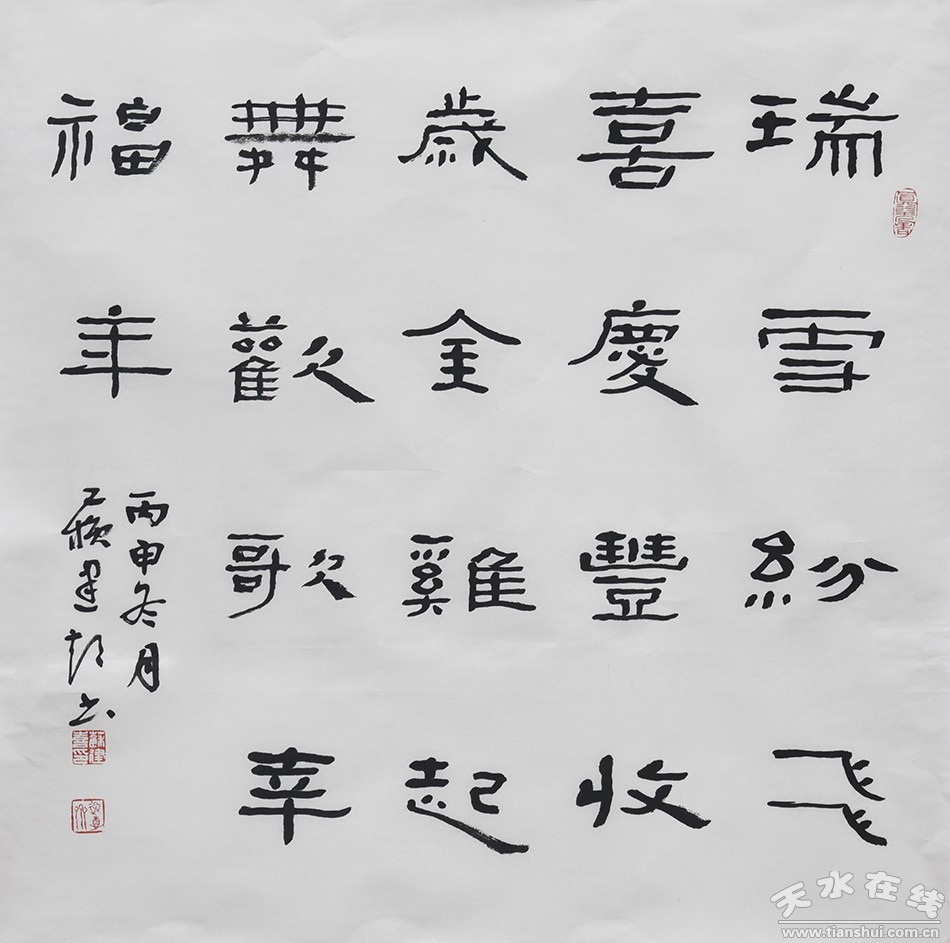 瑞雪紛飛
喜慶豐收
歲金雞起
舞歡歌幸
福年
丙申冬月
蘇建都書
天水在线
www.tianshui.com.cn